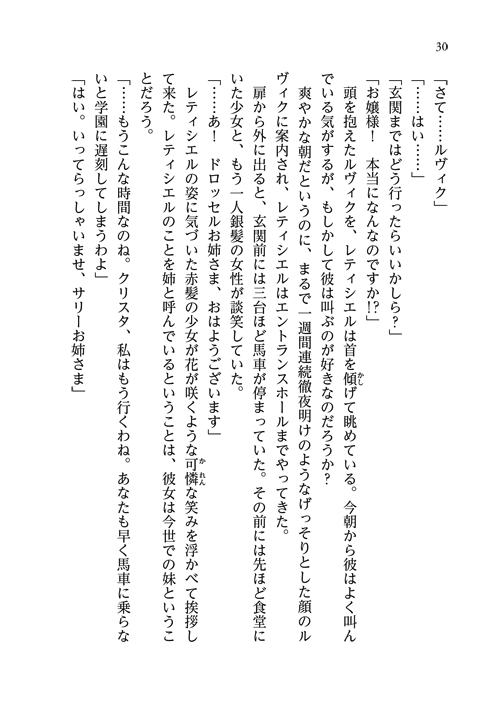 30
「さて……ルヴィク」
「……はい……」
「玄関まではどう行ったらいいかしら?」
「お嬢様! 本当になんなのですか!?」
頭を抱えたルヴィクを、レティシエルは首を傾げて眺めている。今朝から彼はよく叫ん
でいる気がするが、もしかして彼は叫ぶのが好きなのだろうか?
爽やかな朝だというのに、まるで一週間連続徹夜明けのようなげっそりとした顔のル
ヴィクに案内され、レティシエルはエントランスホールまでやってきた。
扉から外に出ると、玄関前には三台ほど馬車が停まっていた。その前には先ほど食堂に
いた少女と、もう一人銀髪の女性が談笑していた。
「……あ! ドロッセルお姉さま、おはようございます」
レティシエルの姿に気づいた赤髪の少女が花が咲くような可憐な笑みを浮かべて挨拶し
て来た。レティシエルのことを姉と呼んでいるということは、彼女は今世での妹というこ
とだろう。
「……もうこんな時間なのね。クリスタ、私はもう行くわね。あなたも早く馬車に乗らな
いと学園に遅刻してしまうわよ」
「はい。いってらっしゃいませ、サリーお姉さま」